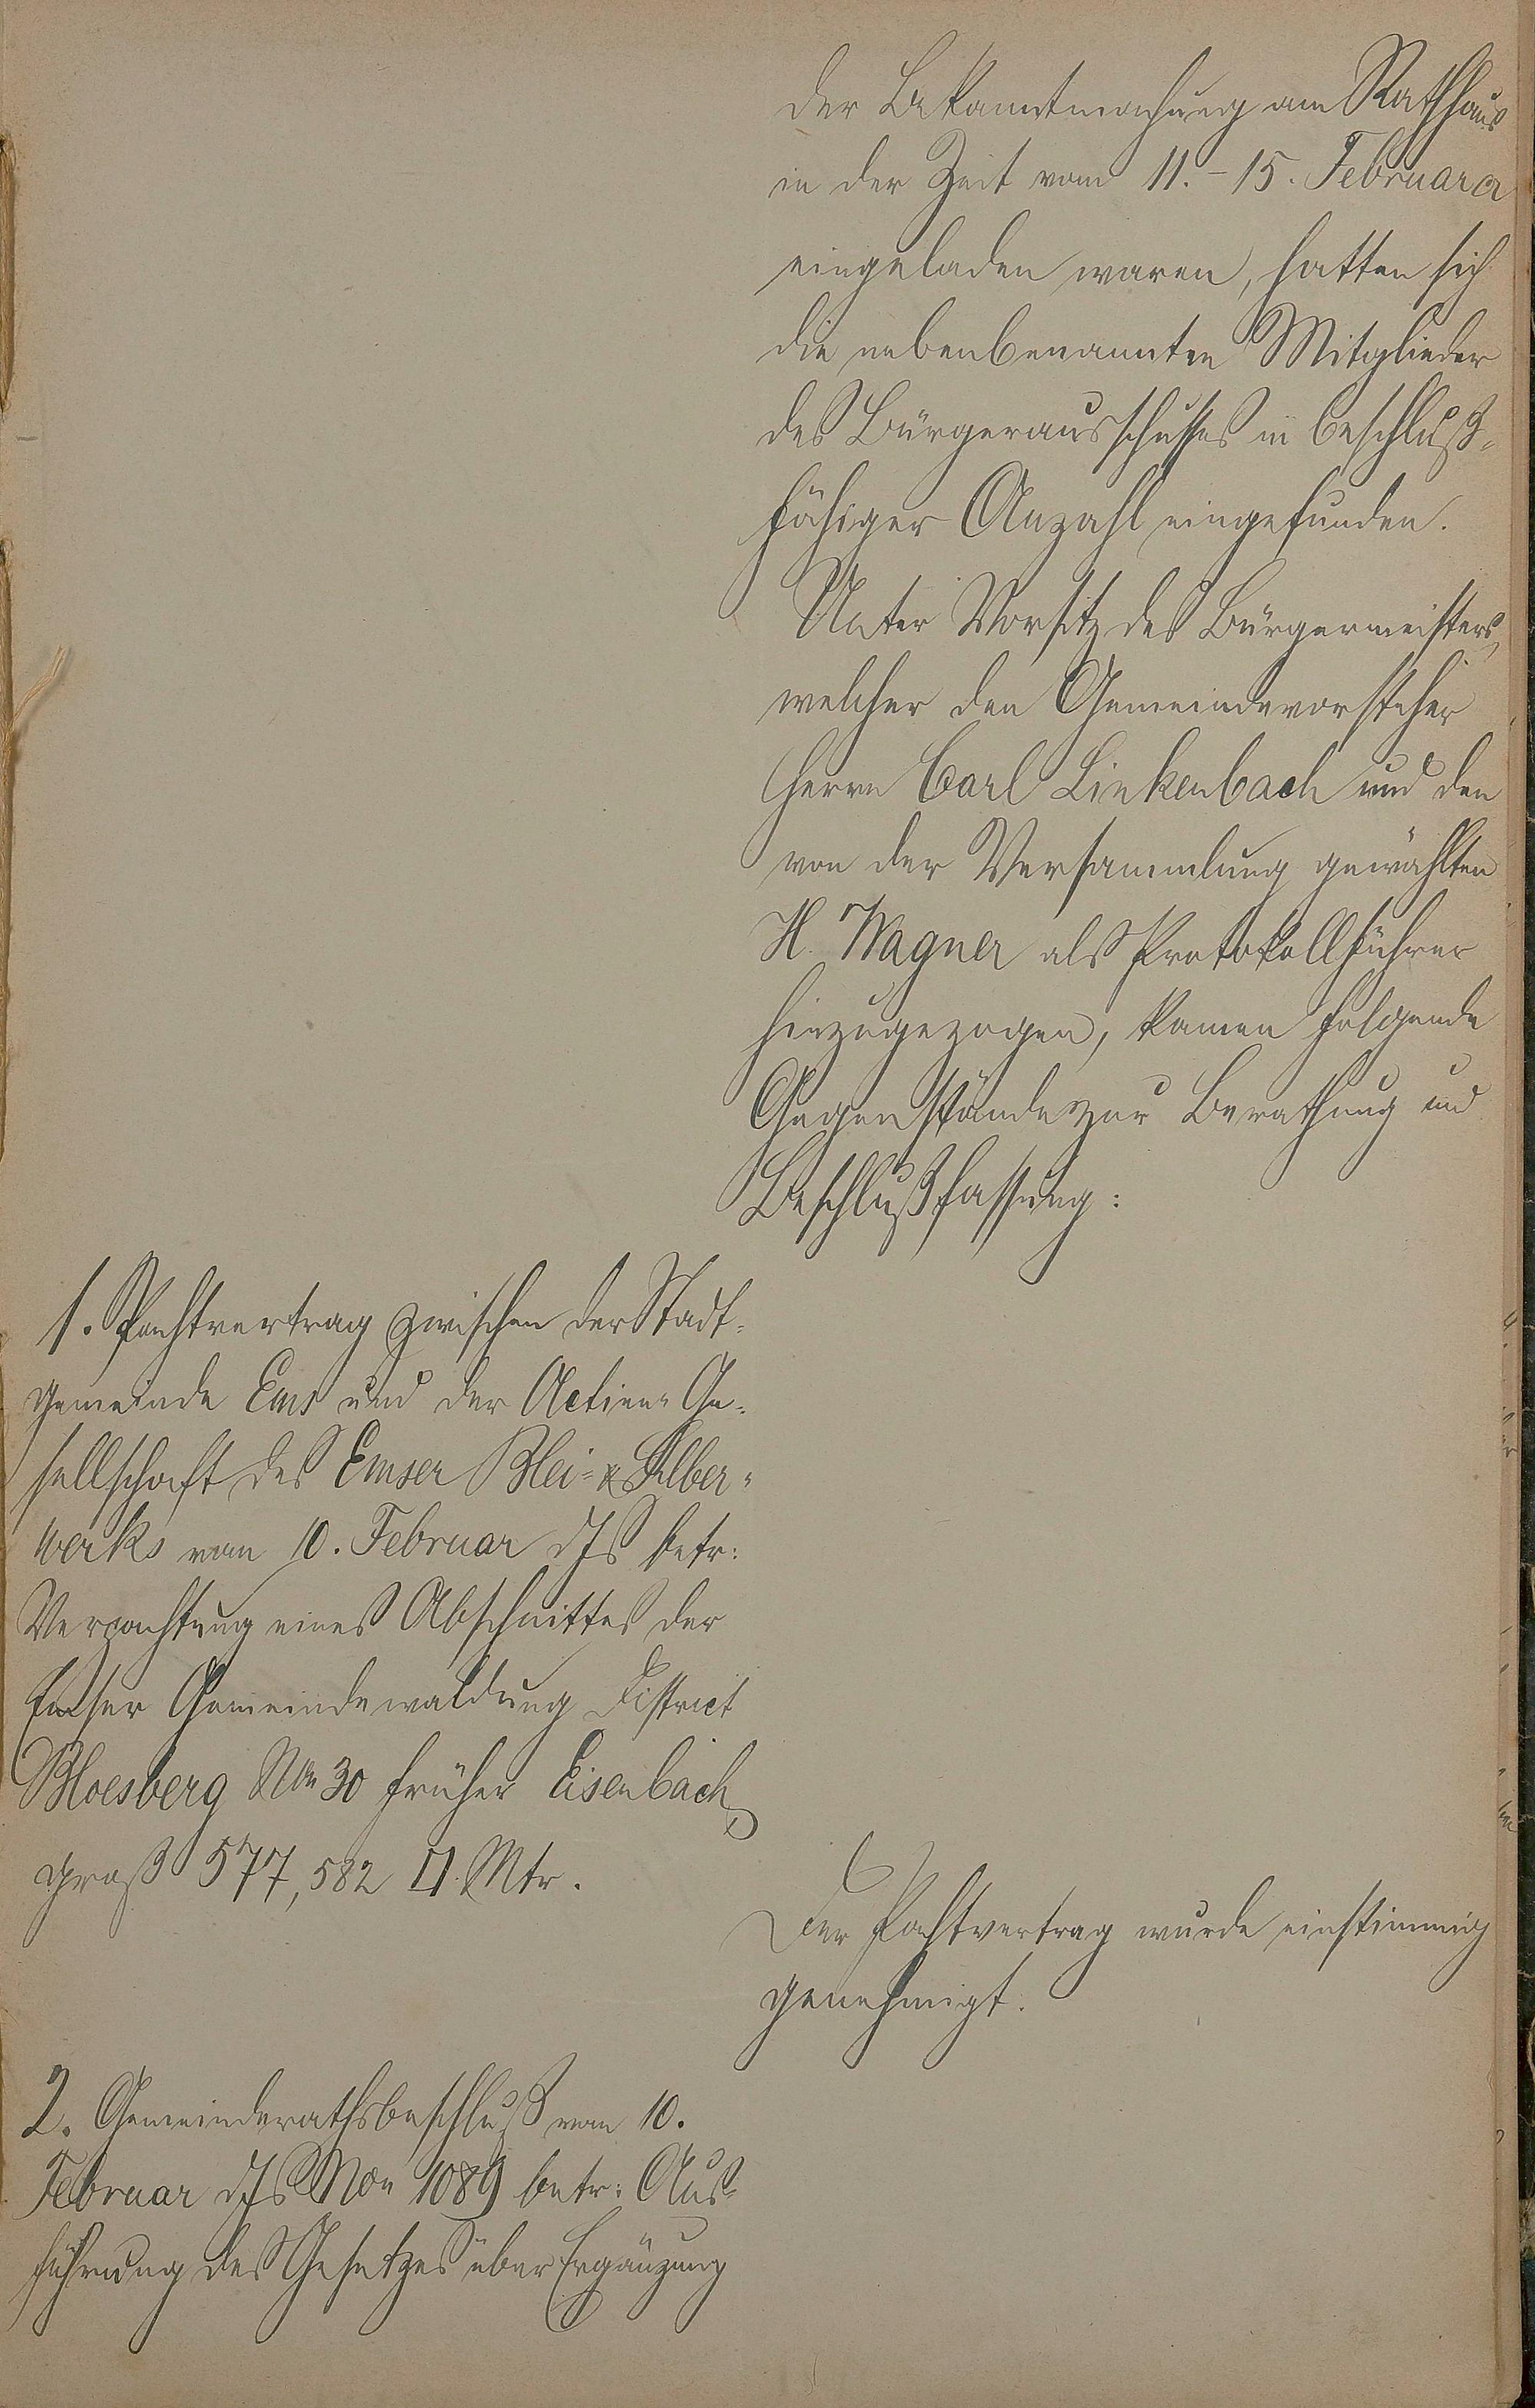 der Bekanntmachung am Rathhaus
in der Zeit vom 11.-15. Februar cr
eingeladen waren, hatten sich
die nebenbenannten Mitglieder
des Bürgerausschusses in beschluß-
fähiger Anzahl eingefunden.
Unter Vorsitz des Bürgermeisters,
welcher den Gemeindevorsteher
Herrn Carl Linkenbach und den
von der Versammlung gewählten
H. Wagner als Protokollführer
hinzugezogen, kamen folgende
Gegenstände zur Berathung und
Beschlußfassung:
1. Pachtvertrag zwischen der Stadt-
gemeinde Ems und der Actien-Ge-
sellschaft des Emser Blei- & Silber-
werks vom 10. Februar djs betr:
Verpachtung eines Abschnittes der
Emser Gemeindewaldung District
Bloesberg No 30 früher Eisenbach,
groß 577,582 □.Mtr.
Der Pachtvertrag wurde einstimmig
genehmigt.
2. Gemeinderathsbeschluß vom 10.
Februar djs Non 1089 betr: Aus-
führung des Gesetzes über Ergänzung